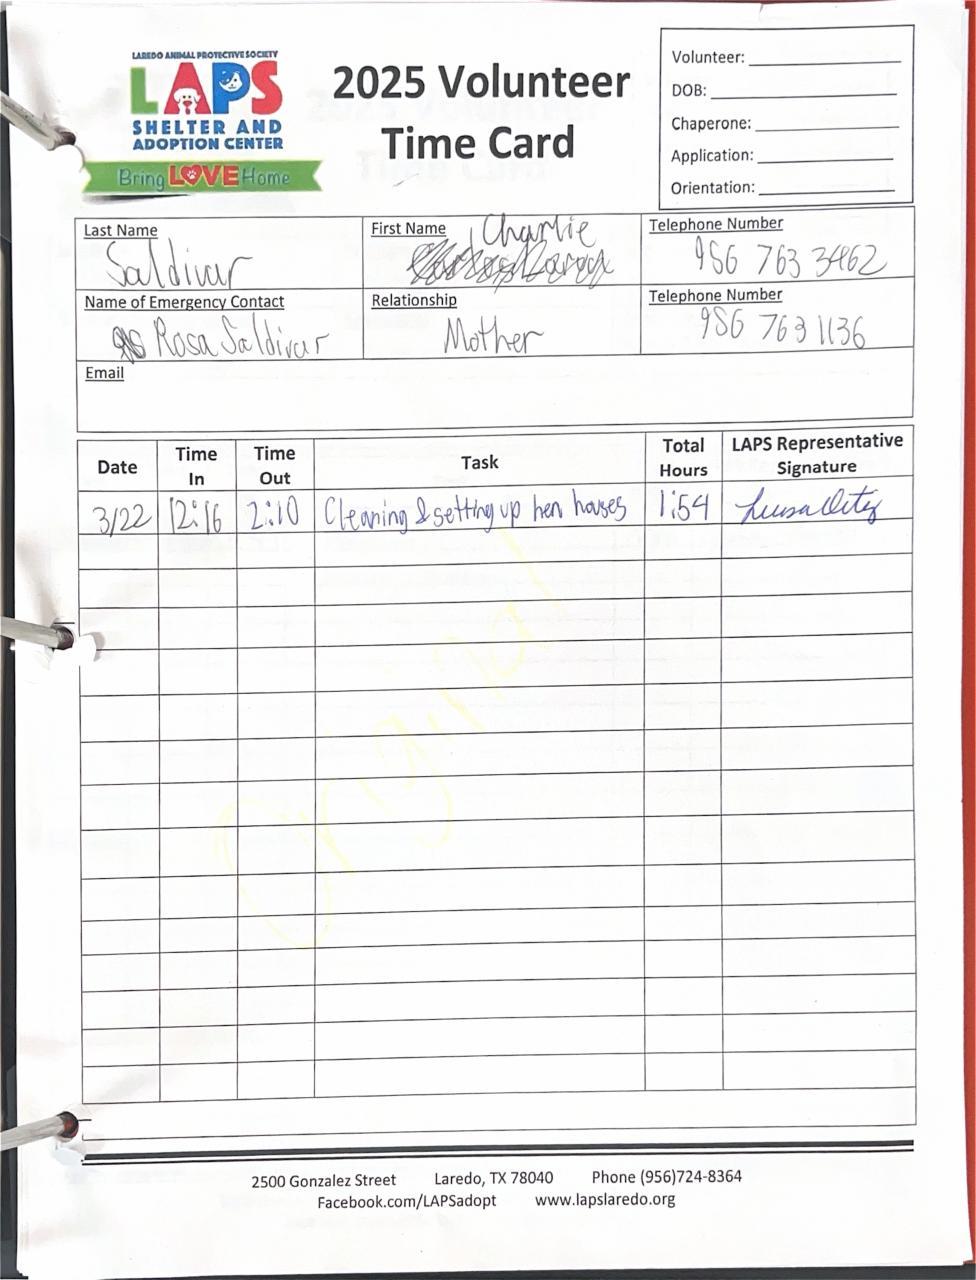 LAREDO ANIMAL PROTECTIVE SOCIETY
LAPS
SHELTER AND
ADOPTION CENTER
Bring LOVE Home
2025 Volunteer
Time Card
Volunteer:
DOB:
Chaperone:
Application:
Orientation:
Last Name
Saldivar
First Name
Charlie
Telephone Number
956 763 3462
Name of Emergency Contact
Rosa Saldivar
Relationship
Mother
Telephone Number
956 763 1136
Email
Date Time In Time Out Task Total Hours LAPS Representative Signature
3/22 12:16 2:10 Cleaning & setting up hen houses 1:54 Luisa Ortiz
Original
2500 Gonzalez Street Laredo, TX 78040 Phone (956)724-8364
Facebook.com/LAPSadopt www.lapslaredo.org